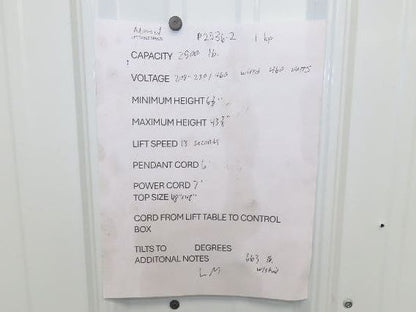 Advanced P2536-2 1 hp
CAPACITY 2500 lb.
VOLTAGE 208-230/460 460
MINIMUM HEIGHT
MAXIMUM HEIGHT
LIFT SPEED 13 seconds
PENDANT CORD 6'
POWER CORD 7'
TOP SIZE
CORD FROM LIFT TABLE TO CONTROL
BOX
TILTS TO DEGREES
ADDITONAL NOTES 663 lb
L.M